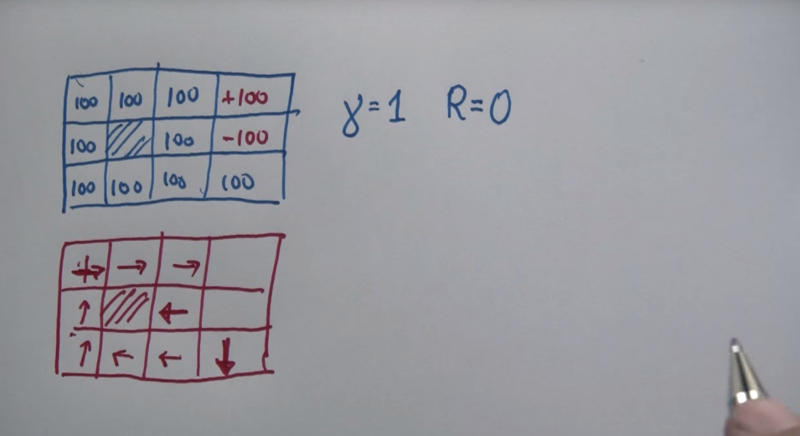 100 100 100 +100
γ=1 R=0
100 100 -100
100 100 100 100